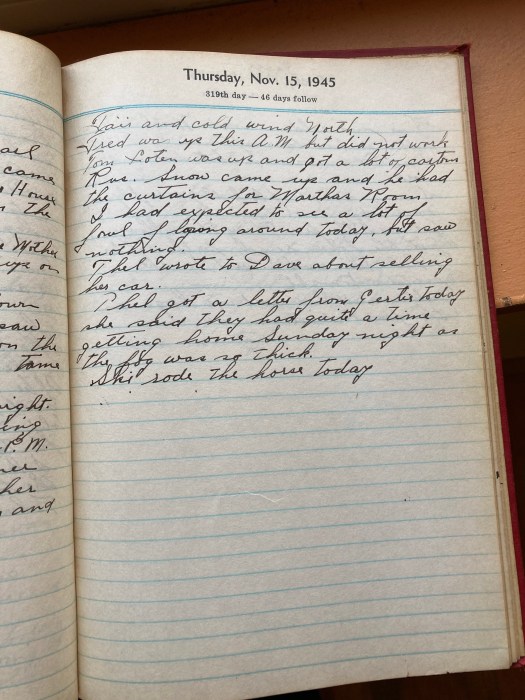 ael
came
House
n the
Mother
ups on
own
saw
on the
tame
ight.
ing
P.M.
ner
her
and
Thursday, Nov. 15, 1945
319th day — 46 days follow
Fair and cold wind North
Fred wa up this A.M. but did not work
Tom Loten was up and got a lot of
Rus. Snow came up and he had
the curtains for Marthas Room
I had expected to see a lot of
fowl flying around today, but saw
nothing.
Thel wrote to Dave about selling
her car.
Phel got a letter from Gertie today
she said they had quit a time
getting home Sunday night as
the fog was so thick.
Ski rode the horse today